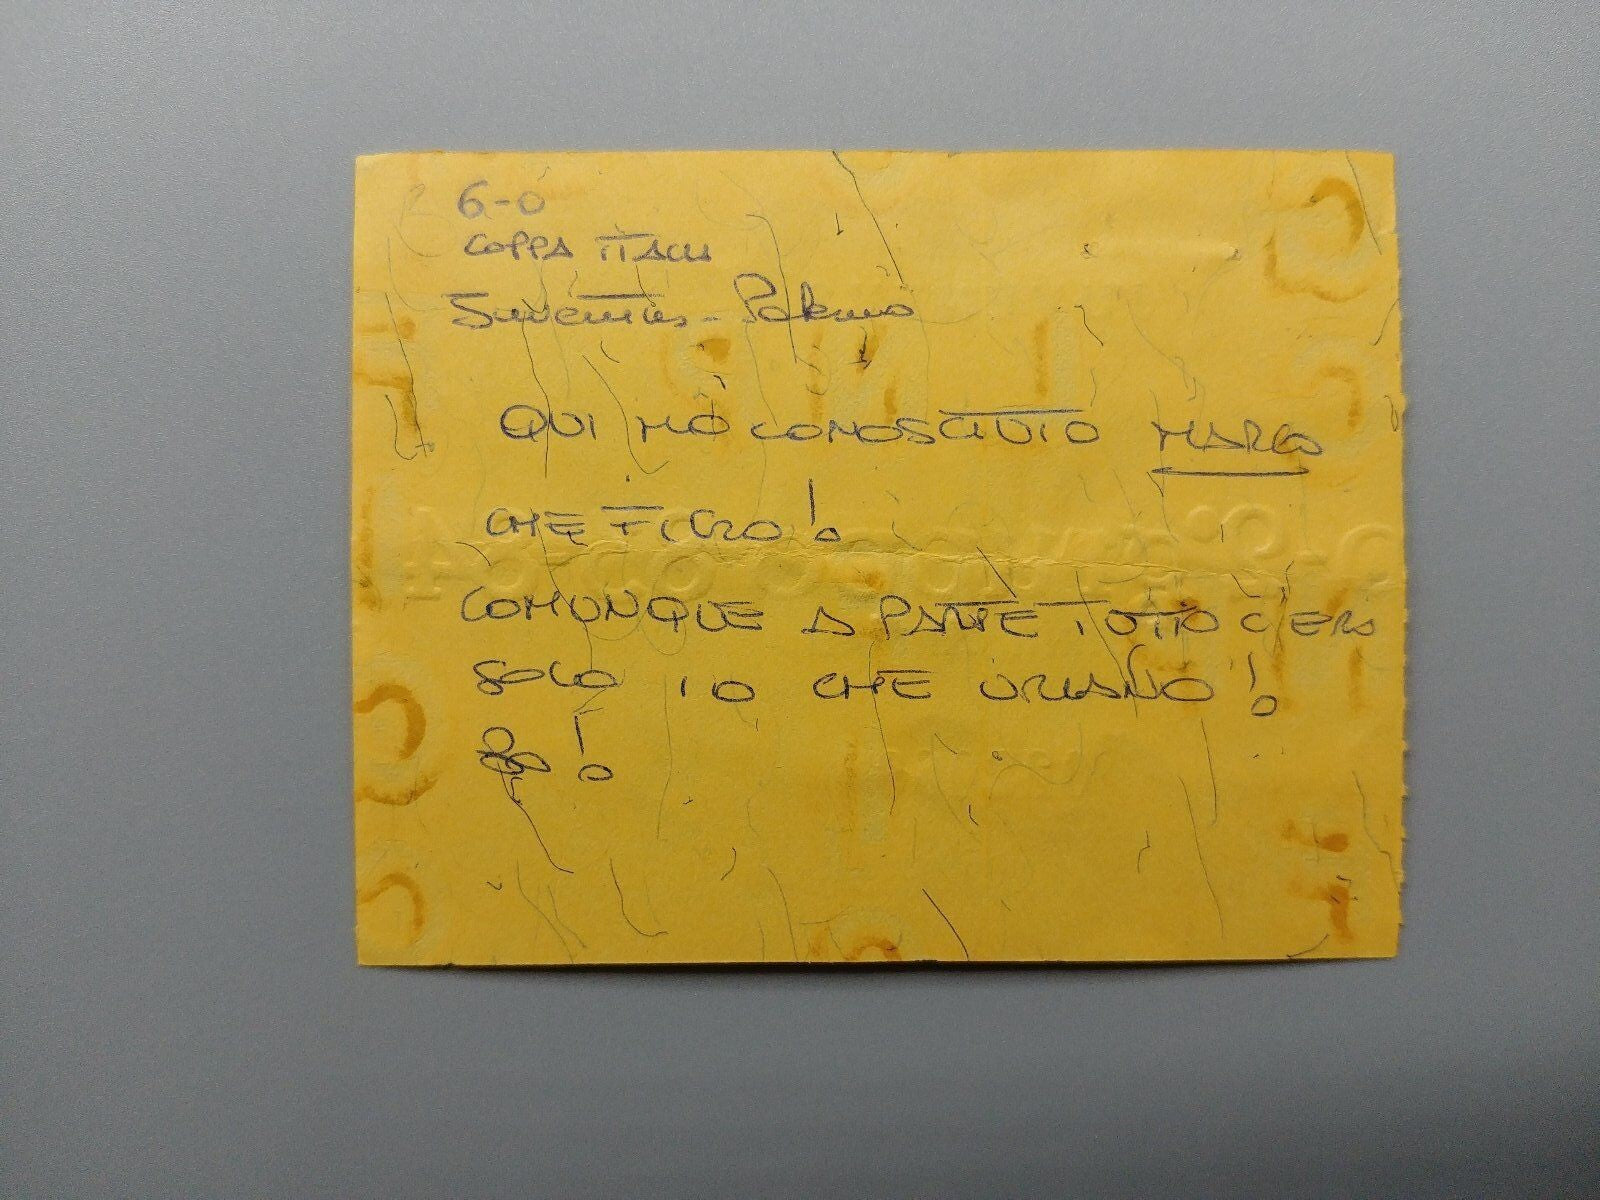 6-0
COPPA ITALIA
Juventus - Palermo
QUI HO CONOSCIUTO MARCO
CHE FICO !
COMUNQUE A PARTE TUTTO C'ERO
SOLO IO CHE URLAVO !
!